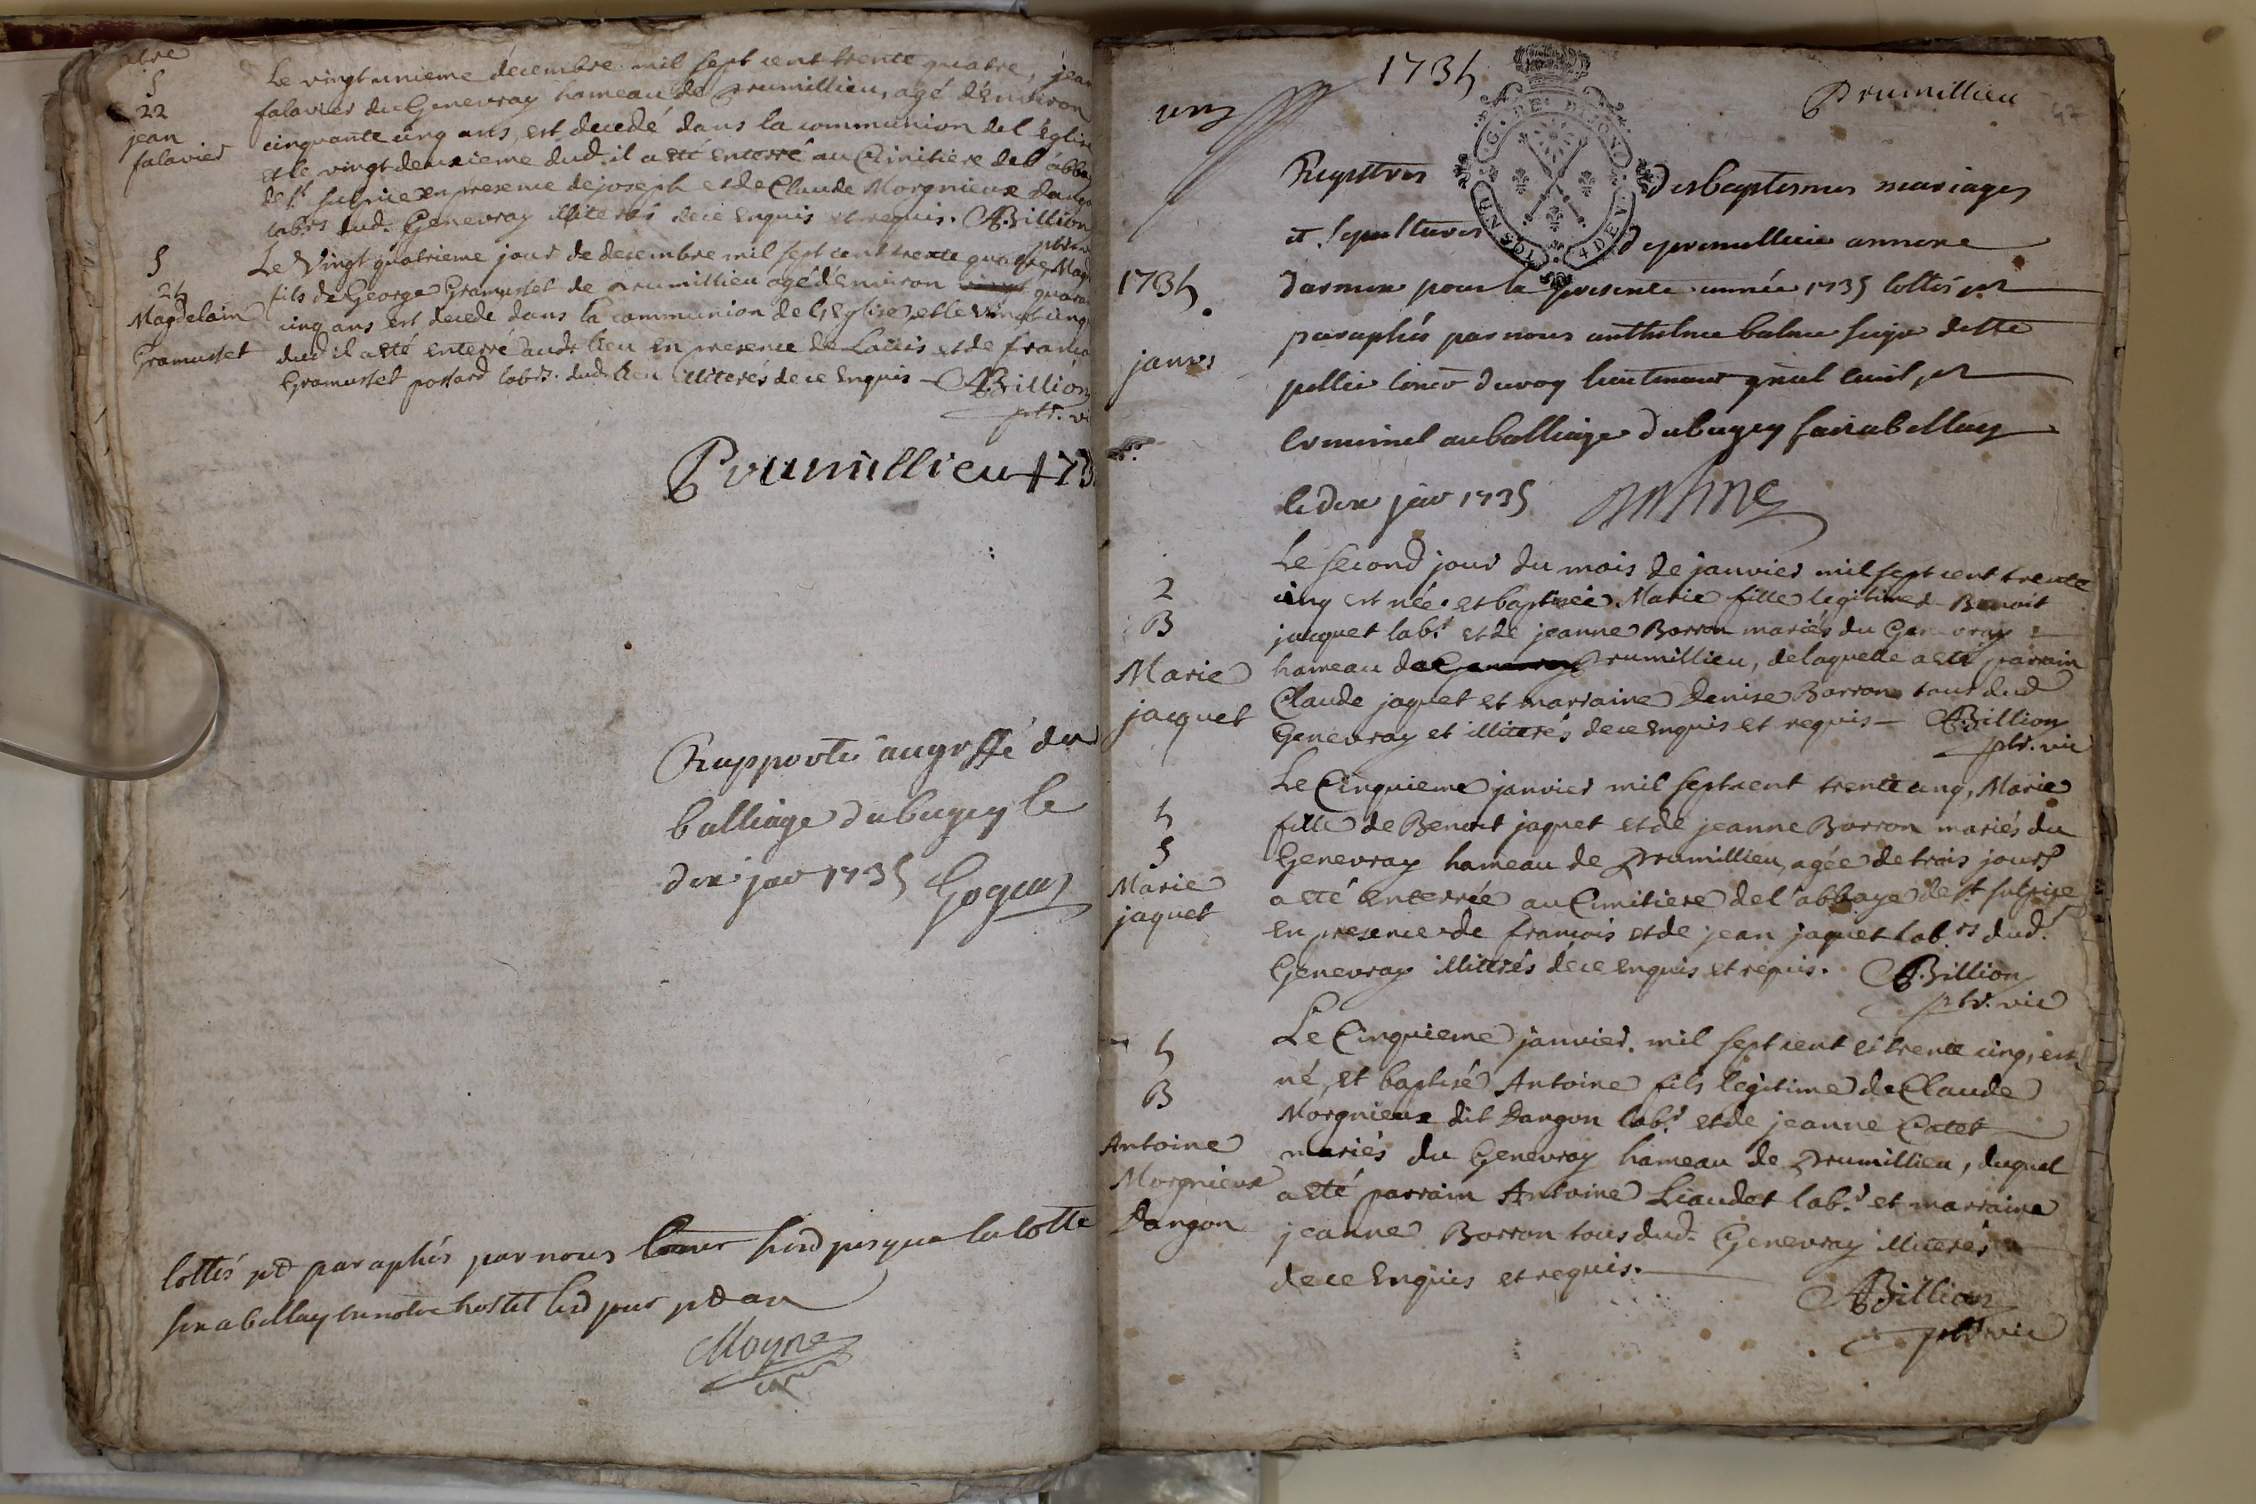 abre
S
22
jean
falavier
Le vingt unieme décembre mil sept cent trente quatre, jean
falavier du Genevray hameau de prumillieu, agé d'environ
cinquante cinq ans, est decedé dans la communion de l'église
et le vingt deuxieme dud. il a eté enterré au Cimitiere de l'abba
de st sulpice en presence de joseph et de Claude Morgnieux dang
labrs dud. Genevray illiterés de ce enquis et requis. ABillion
ptr.
S
Magdelain
Gramusset
Le Vingt quatrieme jour de decembre mil sept cent trente quatre, Mag
fils de George Gramusset de prumillieu agé d'environ quara
cinq ans est decedé dans la communion de l'Eglise, et le vingt cinq
dud il a eté enterré aud. lieu en presence de Louis et de franco
Gramusset possard labrs. dud. lieu illiterés de ce enquis - ABillion
ptr. vi
Prumillieu 173
Rapporté au greffe du
balliage du bugey le
dix janv 1735
cottés et paraphés par nous jusqua la cotte
Moyne
1735
Prumillieu
Registres des baptesmes mariages
et sepultures de premillieu annexe
G. DE DIJON
1735.
janvr
darmix pour la presente année 1735 cottés et
paraphés par nous anthelme balme
lieutenant gñal civil, et
criminel au balliage du bugey
le dix janv 1735
2
B
Marie
jacquet
Le second jour du mois de janvier mil sept cent trente
cinq est née et baptisée Marie fille legitime d. Benoit
jacquet labr. et de jeanne Borron mariés du Genevray
hameau de prumillieu, de laquelle a eté parrain
Claude jaquet et marraine Denise Borron tous dud
Genevray et illiterés de ce enquis et requis - ABillion
ptr. vic
5
S
Marie
jaquet
Le Cinquieme janvier mil sept cent trente cinq, Marie
fille de Benoit jaquet et de jeanne Borron mariés du
Genevray hameau de prumillieu, agée de trois jours
a eté enterrée au Cimitiere de l'abbaye de st. sulpice
en presence de francois et de jean jaquet labrs dud.
Genevray illiterés de ce enquis et requis. ABillion
ptr. vic
5
B
Antoine
Morgnieux
Dangon
Le Cinquieme janvier. mil sept cent et trente cinq, est
né, et baptisé Antoine fils legitime de Claude
Morgnieux dit Dangon labr. et de jeanne Catet
mariés du Genevray hameau de prumillieu, duquel
a eté parrain Antoine Liaudet labr. et marraine
jeanne Borron tous dud. Genevray illiterés
de ce Enquis et requis.
ABillion
ptr. vic